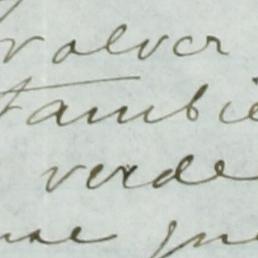 volver
tambie
verde
que